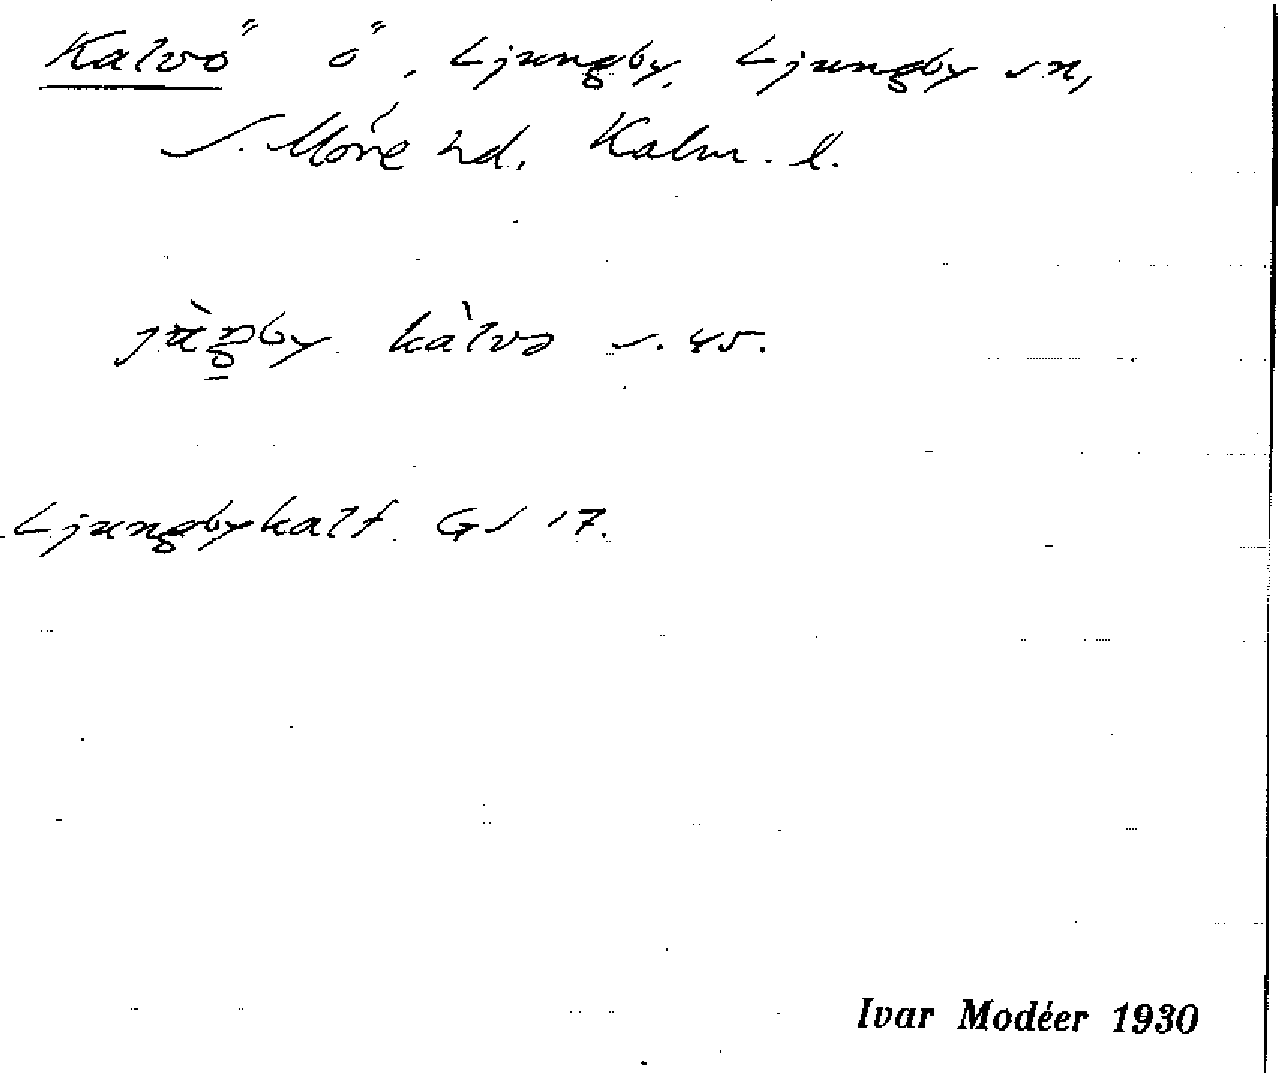 Kalvö ö, Ljungby, Ljungby sn,
S. Möre hd. Kalm. l.
kàlvə s. 45.
Ljungbykalf GS 17.
Ivar Modéer 1930